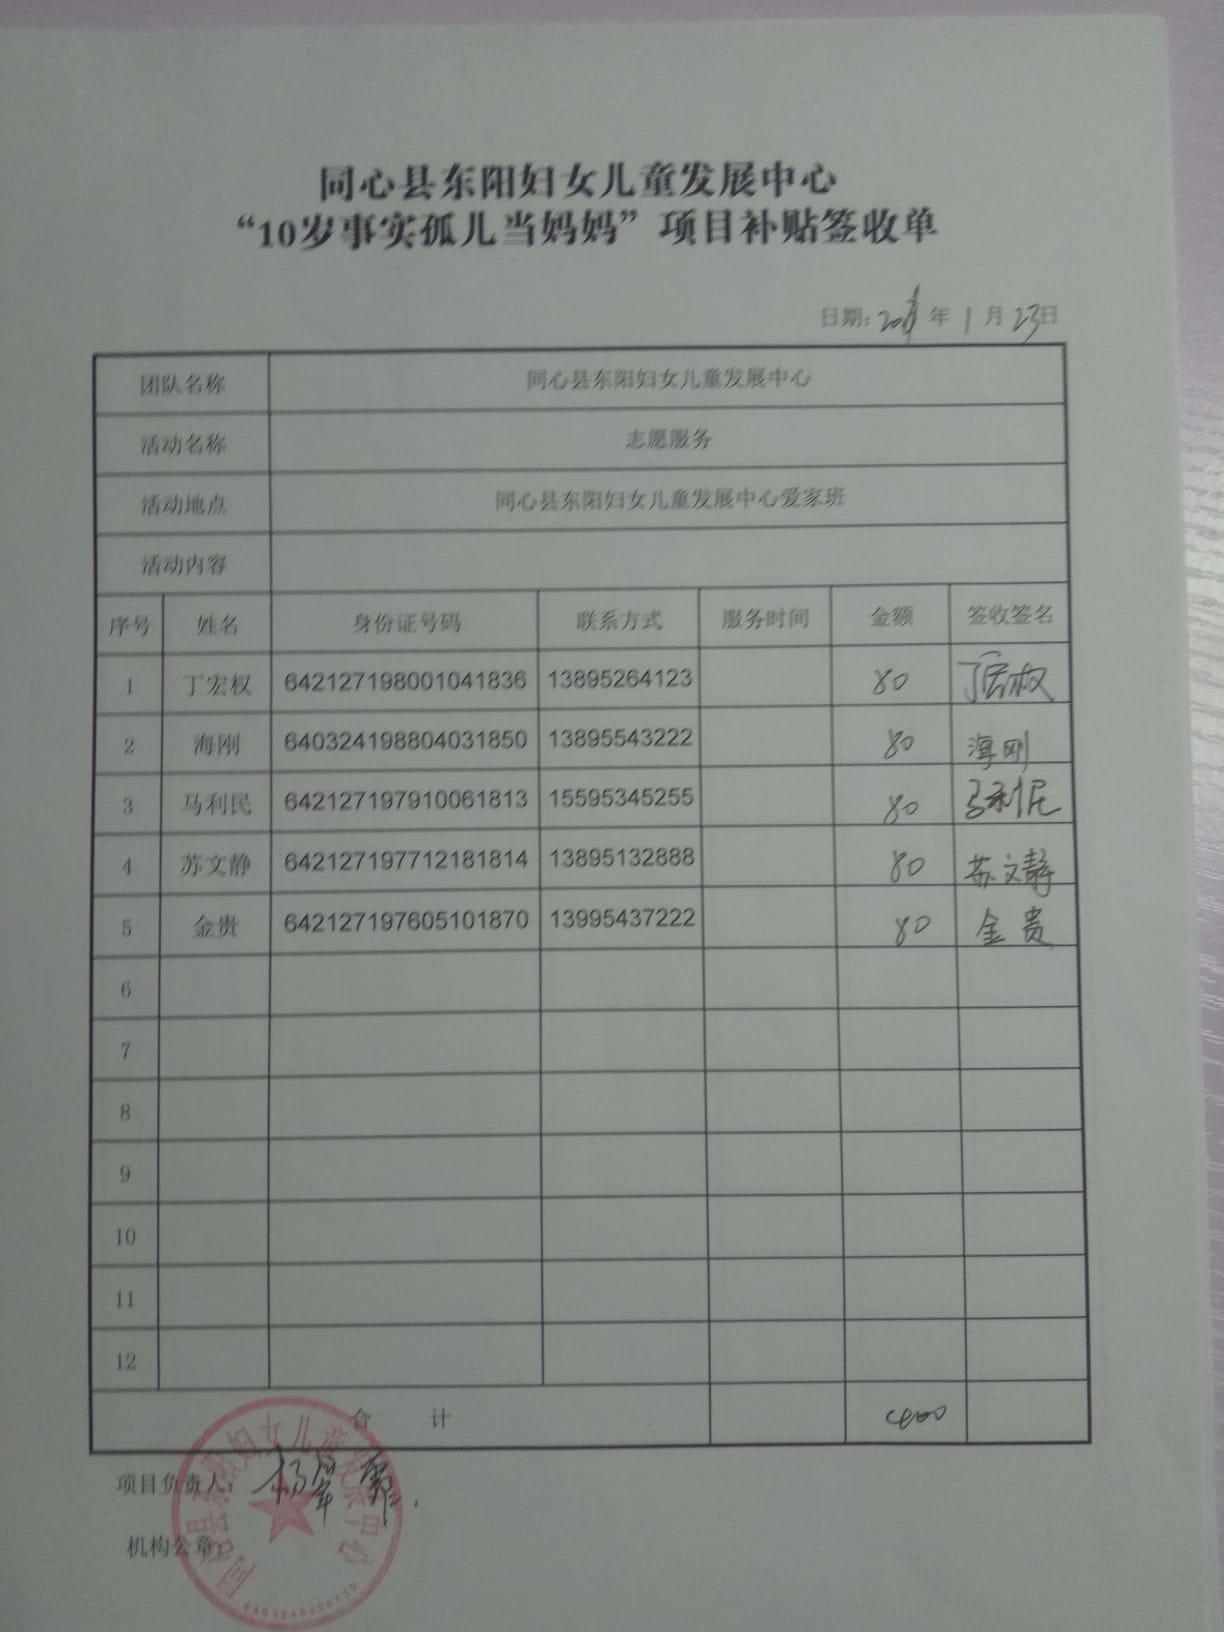 同心县东阳妇女儿童发展中心
“10岁事实孤儿当妈妈”项目补贴签收单
日期: 年 1 月 23日
团队名称 同心县东阳妇女儿童发展中心
活动名称 志愿服务
活动地点 同心县东阳妇女儿童发展中心爱家班
活动内容
序号 姓名 身份证号码 联系方式 服务时间 金额 签收签名
1 丁宏权 642127198001041836 13895264123 80 丁宏权
2 海刚 640324198804031850 13895543222 80 海刚
3 马利民 642127197910061813 15595345255 80 马利民
4 苏文静 642127197712181814 13895132888 80 苏文静
5 金贵 642127197605101870 13995437222 80 金贵
6
7
8
9
10
11
12
合 计 400
项目负责人:
机构公章:
同心县东阳妇女儿童发展中心